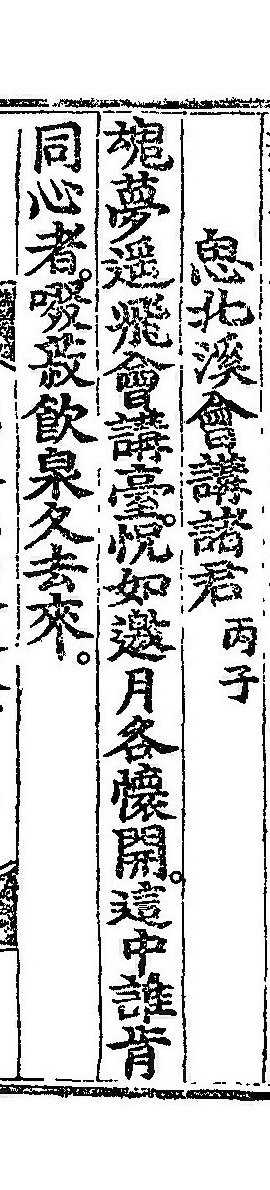 思北溪會講諸君 丙子
魂夢遥飛會講臺。怳如邀月各懷開。這中誰肯
同心者。啜菽飮泉久去來。